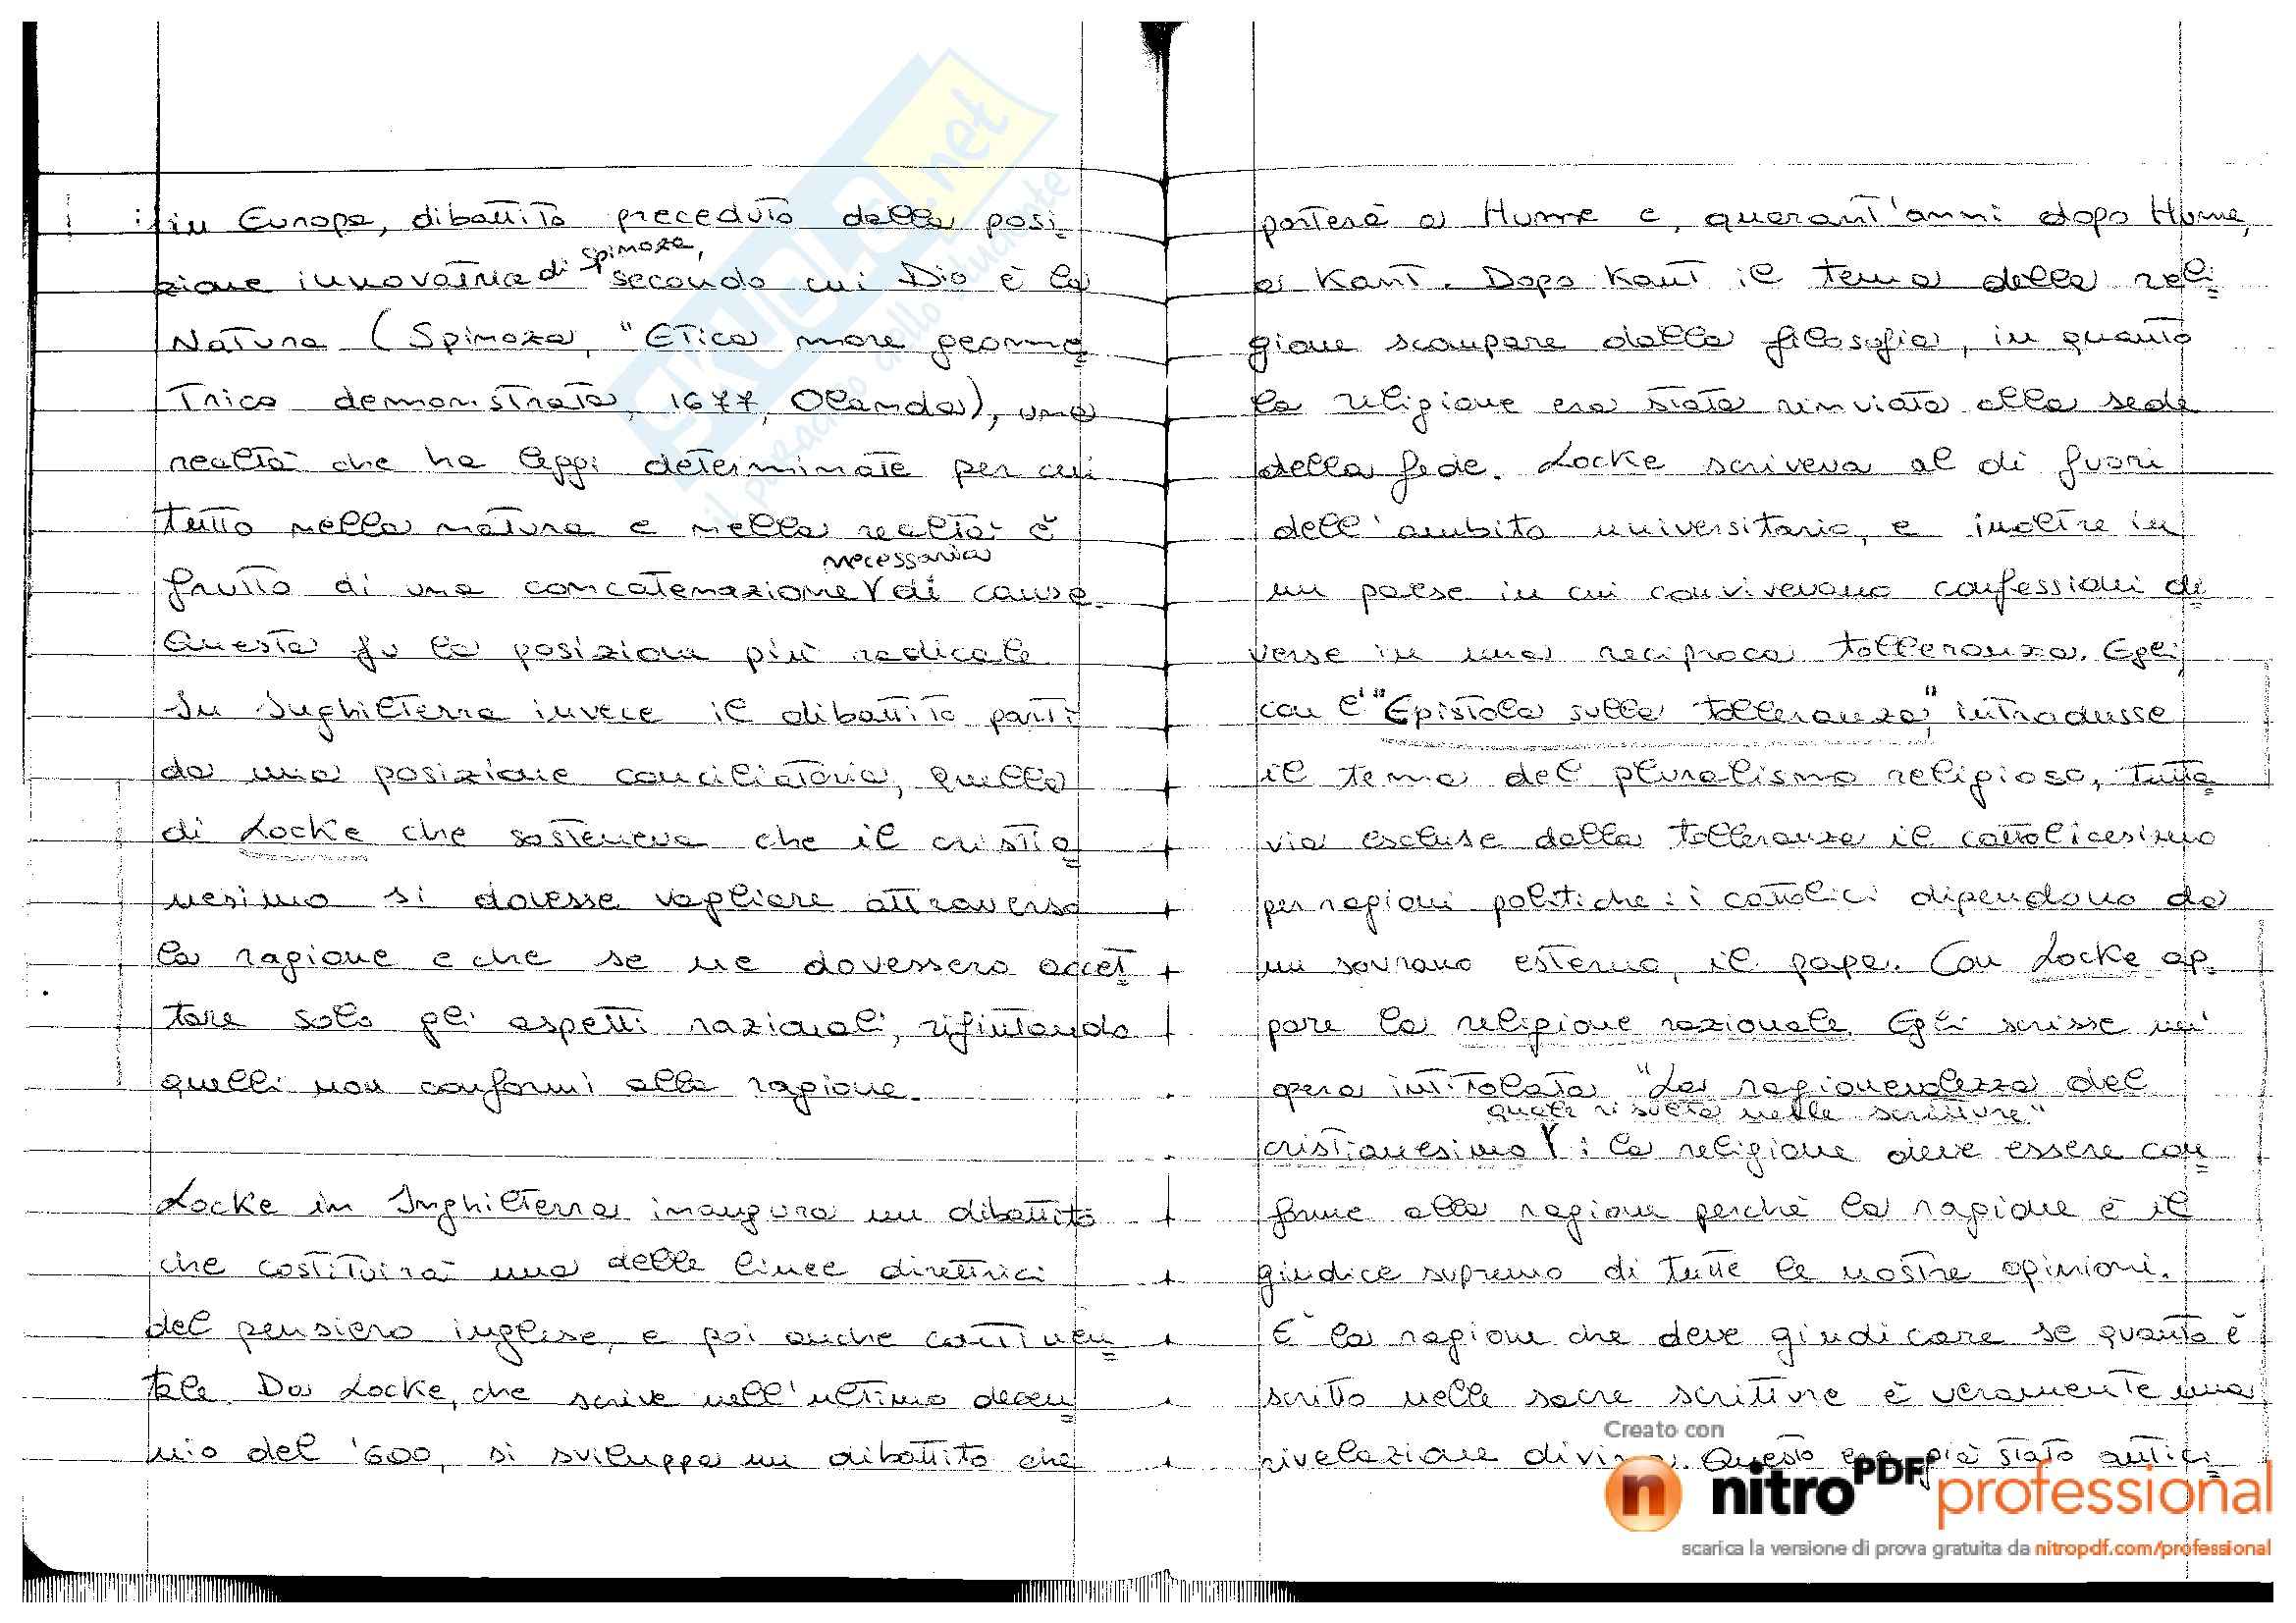 in Europa, dibattito preceduto dalla posi
zione innovatrice di Spinoza, secondo cui Dio è la
Natura (Spinoza, "Etica more geome
trico demonstrata, 1677, Olanda), una
realtà che ha leggi determinate per cui
tutto nella natura e nella realtà è
frutto di una concatenazione necessaria di cause.
Questa fu la posizione più radicale
In Inghilterra invece il dibattito partì
da una posizione conciliatoria, quella
di Locke che sosteneva che il cristia
nesimo si dovesse vagliare attraverso
la ragione e che se ne dovessero accet
tare solo gli aspetti razionali, rifiutando
quelli non conformi alla ragione.
Locke in Inghilterra inaugura un dibattito
che costituirà una delle linee direttrici
del pensiero inglese, e poi anche continen
tale. Da Locke, che scrive nell'ultimo decen
nio del '600, si sviluppa un dibattito che
porterà a Hume e, quarant'anni dopo Hume,
a Kant. Dopo Kant il tema della reli
gione scompare dalla filosofia, in quanto
la religione era stata rinviata alla sede
della fede. Locke scriveva al di fuori
dell'ambito universitario, e inoltre in
un paese in cui convivevano confessioni di
verse in una reciproca tolleranza. Egli,
con l'"Epistola sulla tolleranza", introdusse
il tema del pluralismo religioso, tutta
via escluse dalla tolleranza il cattolicesimo
per ragioni politiche: i cattolici dipendono da
un sovrano esterno, il papa. Con Locke ap
pare la religione razionale. Egli scrisse un'
opera intitolata "La ragionevolezza del
cristianesimo quale risulta nelle scritture": la religione deve essere con
forme alla ragione perchè la ragione è il
giudice supremo di tutte le nostre opinioni.
E' la ragione che deve giudicare se quanto è
scritto nelle sacre scritture è veramente una
rivelazione divina. Questo era già stato antici
SKUOLA.net
il paradiso dello studente
Creato con
nitro PDF professional
scarica la versione di prova gratuita da nitropdf.com/professional